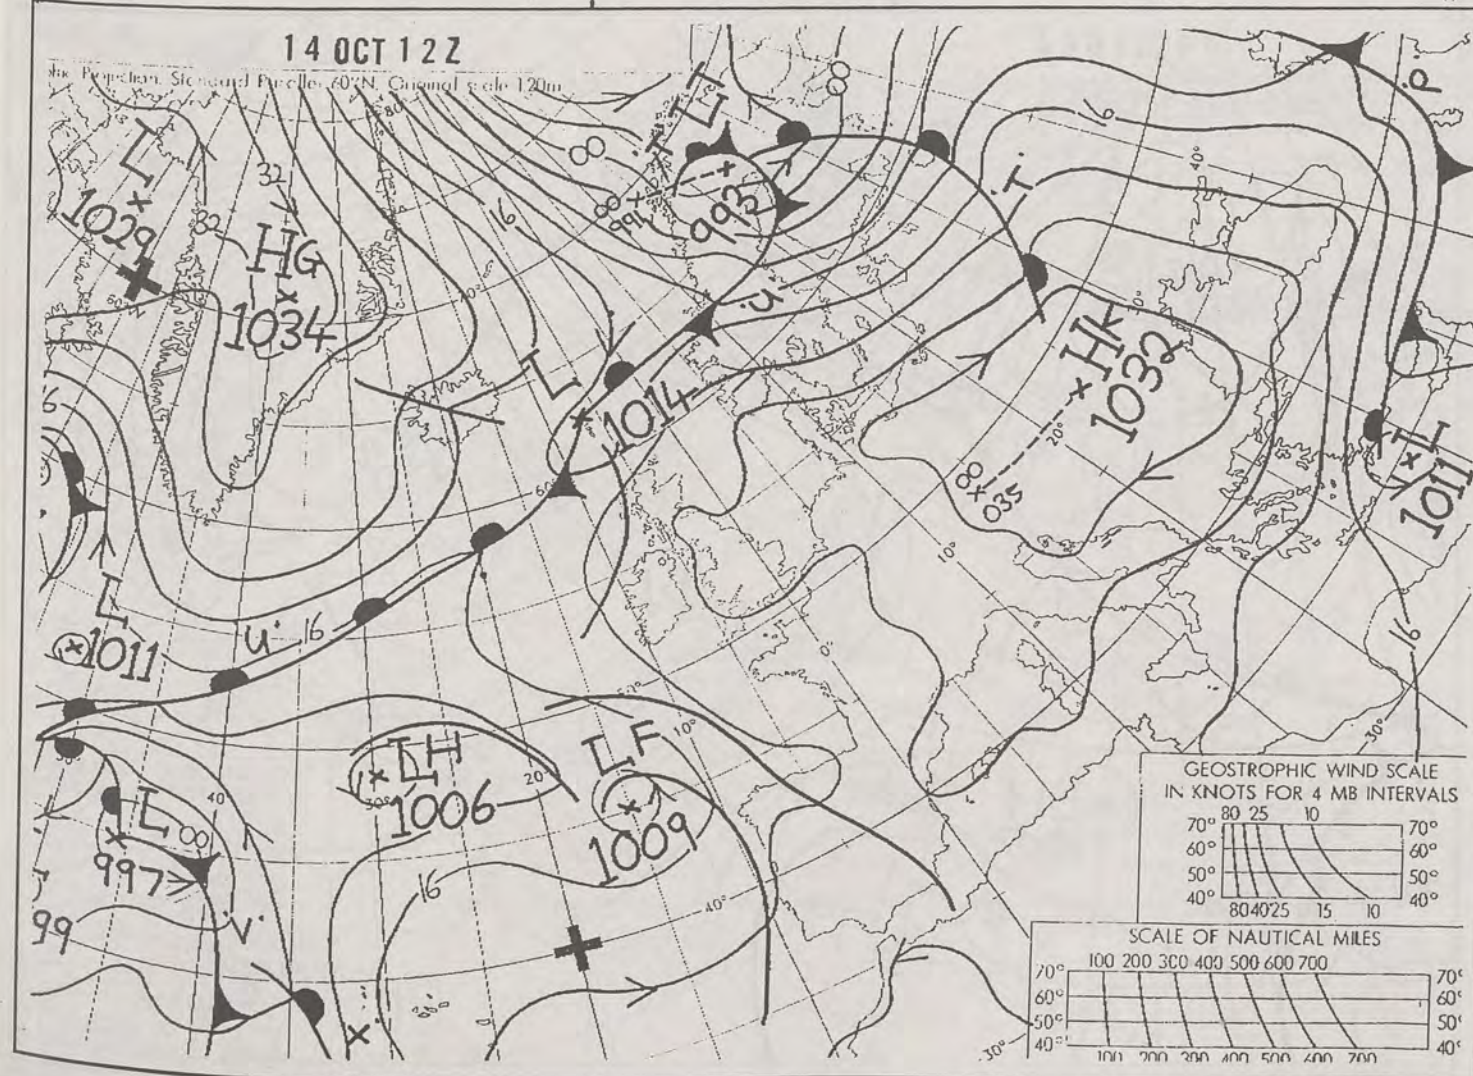 14 OCT 12Z
Projection. Standard Parallel 60°N, Original scale 120m
80
L
1029
32
32
HG
1034
60°
16
00
00
991
993
'T'
16
40°
'P'
L
1014
'U'
HK
1032
20°
00
035
10°
L
1011
16
L
1011
'U'
16
60
50°
0°
10°
20°
30°
LH
1006
LF
1009
40
L
00
997
99
'V'
'X'
16
40°
30°
30°
GEOSTROPHIC WIND SCALE
IN KNOTS FOR 4 MB INTERVALS
80 25 10
70° 70°
60° 60°
50° 50°
40° 40°
80 40 25 15 10
SCALE OF NAUTICAL MILES
100 200 300 400 500 600 700
70° 70°
60° 60°
50° 50°
40° 40°
100 200 300 400 500 600 700